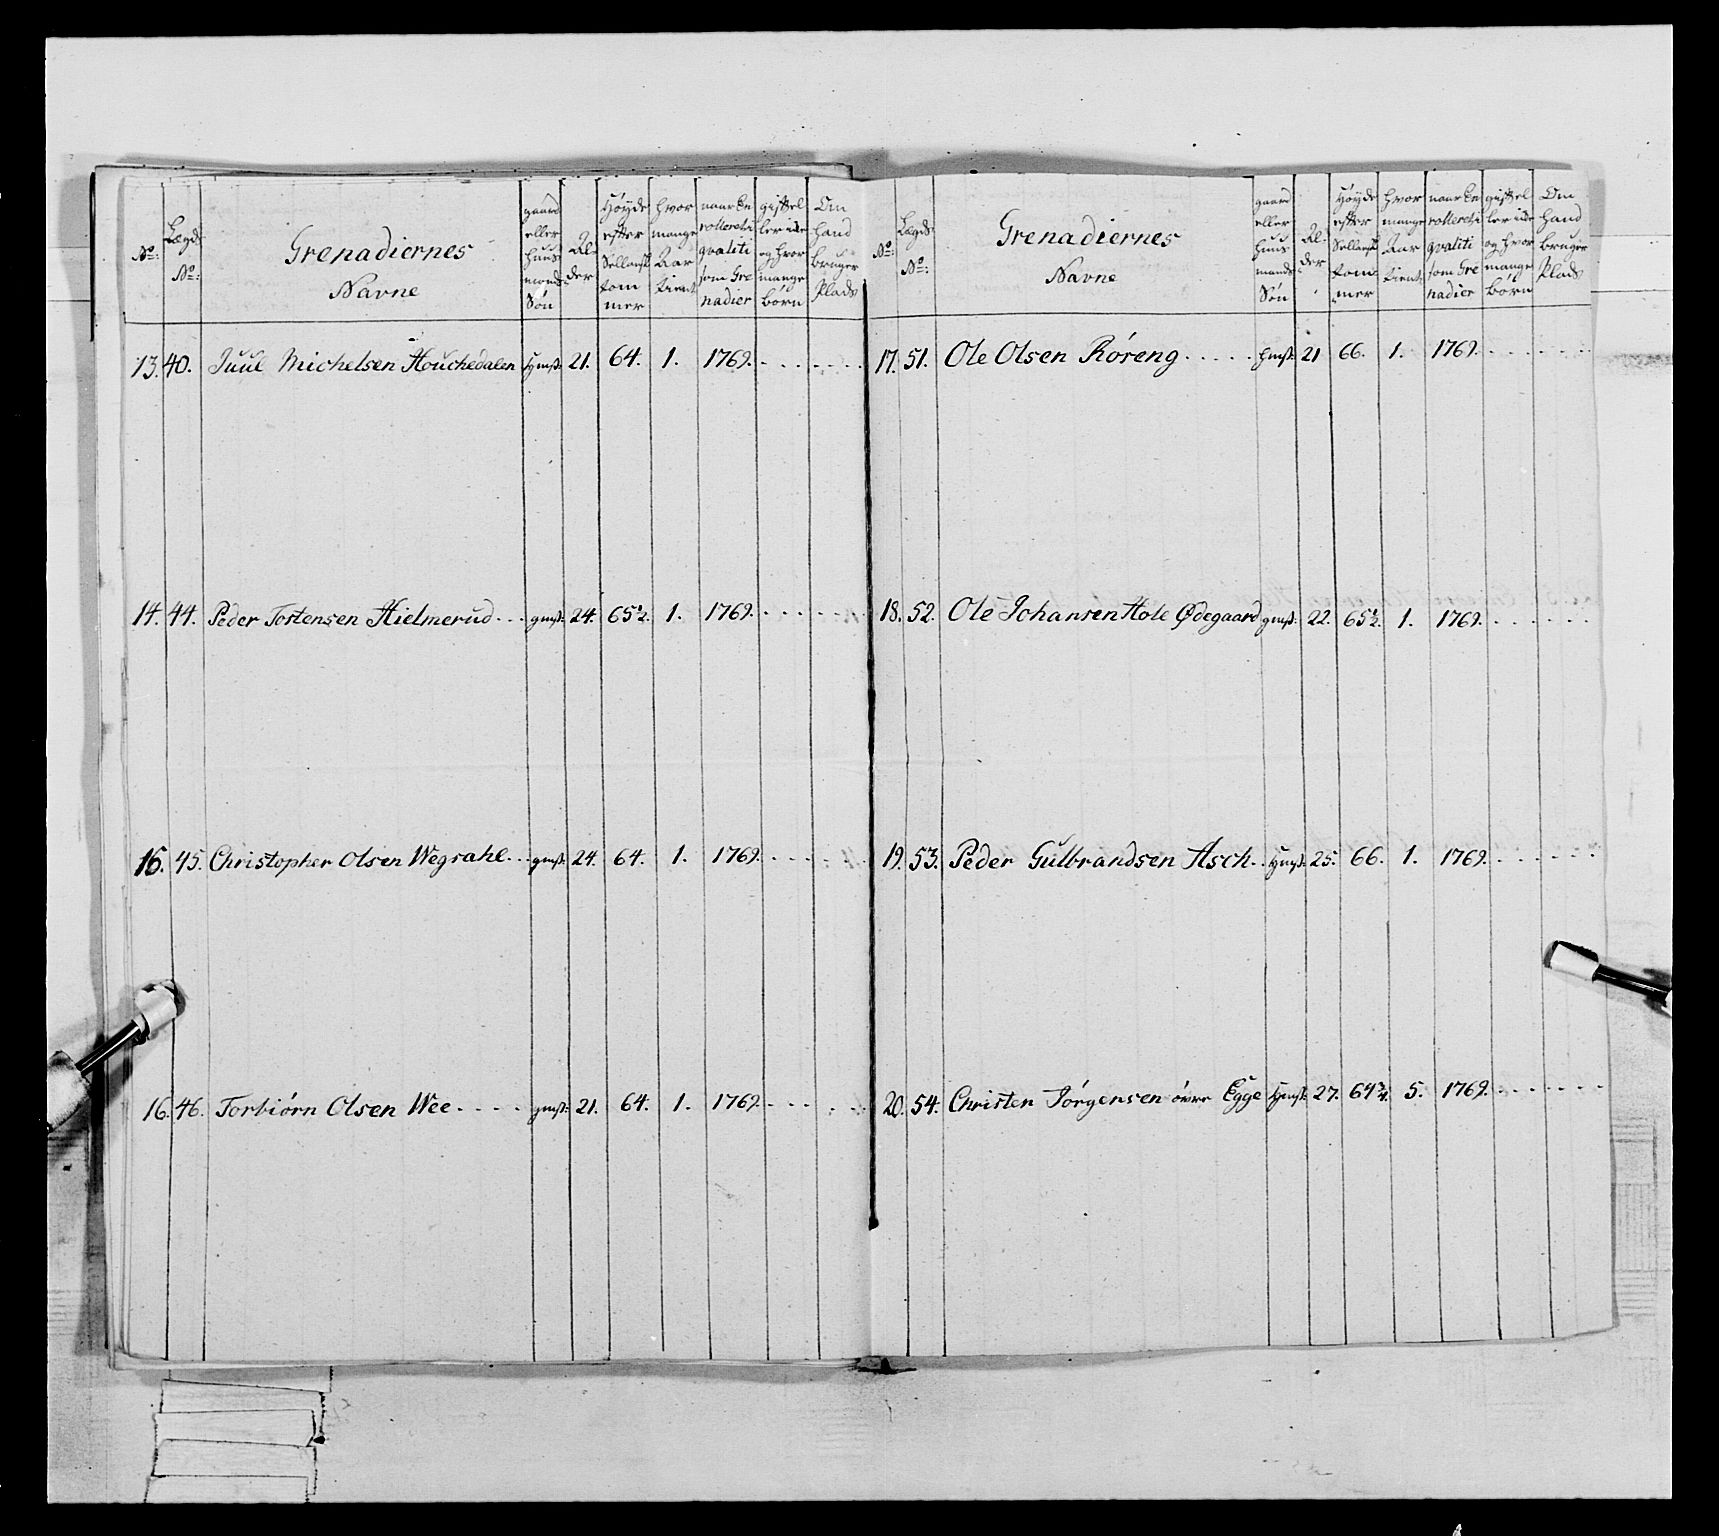 No: Lægds No: Grenadiernes Navne gaard eller huus mands Søn Al- der Høyde efter Sellansk tom mer hvor mange Aar tient naar En rolleret i qvaliti som Gre nadier gift el ler ide og hvor mange børn Om hand bruger Plads
13. 40. Juul Michelsen Houchedalen hmß: 21. 64. 1. 1769. . . . . . .
14. 44. Peder Tostensen Hielmerud . . . gmß: 24. 65½. 1. 1769. . . . . . .
16. 45. Christopher Olsen Wegsahl . . . gmß: 24. 64. 1. 1769. . . . . .
16. 46. Torbiórn Olsen Wee . . . . . gmß: 21. 64. 1. 1769. . . . . .
No: Lægds No: Grenadiernes Navne gaard eller huus mands Søn Al- der Høyde efter Sellansk tom- mer hvor mange Aar tient naar En rolleret i qvaliti som Gre nadier gift el ler ide og hvor mange børn Om hand bruger Plads
17. 51. Ole Olsen Róreng . . . . . hmß: 21 66. 1. 1769. . . . . . .
18. 52. Ole Johansen Hole Ødegaard gmß: 22. 65½. 1. 1769. . . . . . .
19. 53. Peder Gulbrandsen Asch . . hmß: 25. 66. 1. 1769. . . . . . .
20. 54. Christen Jórgensen óvre Egge hmß: 27. 64¾. 5. 1769. . . . . . .